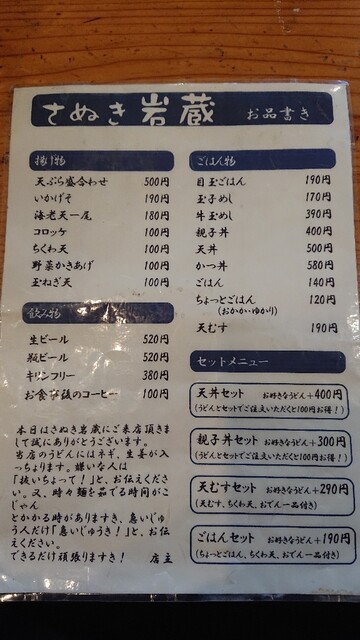 さぬき 岩蔵 お品書き
揚げ物
天ぷら盛合わせ 500円
いかげそ 190円
海老天一尾 180円
コロッケ 100円
ちくわ天 100円
野菜かきあげ 100円
玉ねぎ天 100円
飲み物
生ビール 520円
瓶ビール 520円
キリンフリー 380円
お食事後のコーヒー 100円
本日はさぬき岩蔵にご来店頂きま
して誠にありがとうございます。
当店のうどんにはネギ、生姜が入
っちょります。嫌いな人は
「抜いちょって！」と、お伝えくださ
い。又、時々麺を茹でる時間がご
じゃん
とかかる時がありますき、急いじゅ
う人だけ「急いじゅうき！」と、お伝
えください。
できるだけ頑張りますき！ 店主
ごはん物
目玉ごはん 190円
玉子めし 170円
牛玉めし 390円
親子丼 400円
天丼 500円
かつ丼 580円
ごはん 140円
ちょっとごはん 120円
（おかか・ゆかり）
天むす 190円
セットメニュー
天丼セット お好きなうどん＋400円
（うどんとセットでご注文いただくと100円お得！）
親子丼セット お好きなうどん＋300円
（うどんとセットでご注文いただくと100円お得！）
天むすセット お好きなうどん＋290円
（天むす、ちくわ天、おでん一品付き）
ごはんセット お好きなうどん＋190円
（ちょっとごはん、ちくわ天、おでん一品付き）